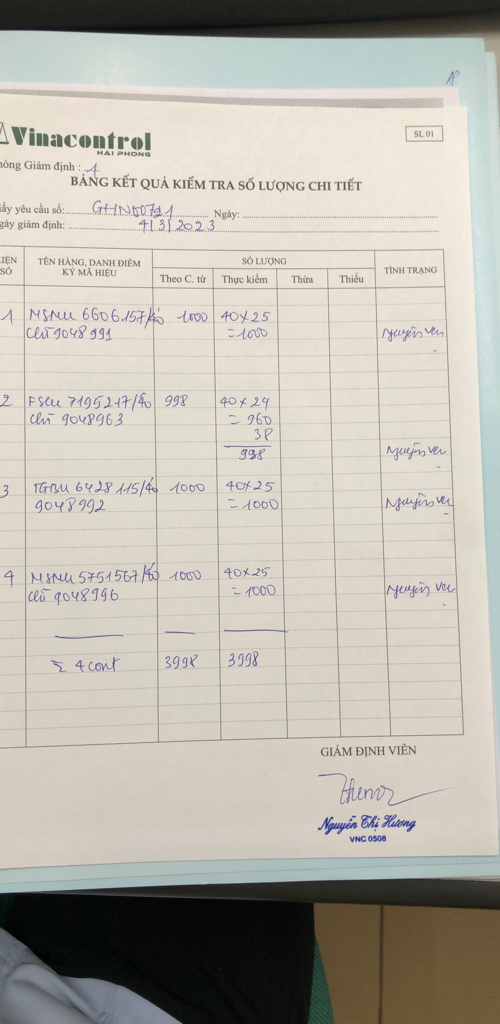 Vinacontrol
HAI PHONG
SL 01
hòng Giám định : 1
BẢNG KẾT QUẢ KIỂM TRA SỐ LƯỢNG CHI TIẾT
iấy yêu cầu số: Ngày:
gày giám định: 4/3/2023
IỆN SỐ TÊN HÀNG, DANH ĐIỂM KÝ MÃ HIỆU SỐ LƯỢNG TÌNH TRẠNG
Theo C. từ Thực kiểm Thừa Thiếu
1 MSMU 6606157/40 1000 40x25
Chì 9048991 =1000 Nguyên vẹn
2 FSCU 7195217/40 998 40x24
chì 9048963 = 960
38
998 Nguyên vẹn
3 TGBU 6428115/40 1000 40x25
9048992 = 1000 Nguyên vẹn
4 MSMU 5751567/40 1000 40x25
chì 9048996 = 1000 Nguyên vẹn
Σ 4 cont 3998 3998
GIÁM ĐỊNH VIÊN
Nguyễn Thị Hương
VNC 0508